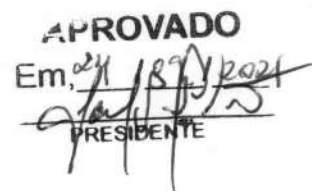 APROVADO
Em, 24 / 8 / 2021
PRESIDENTE